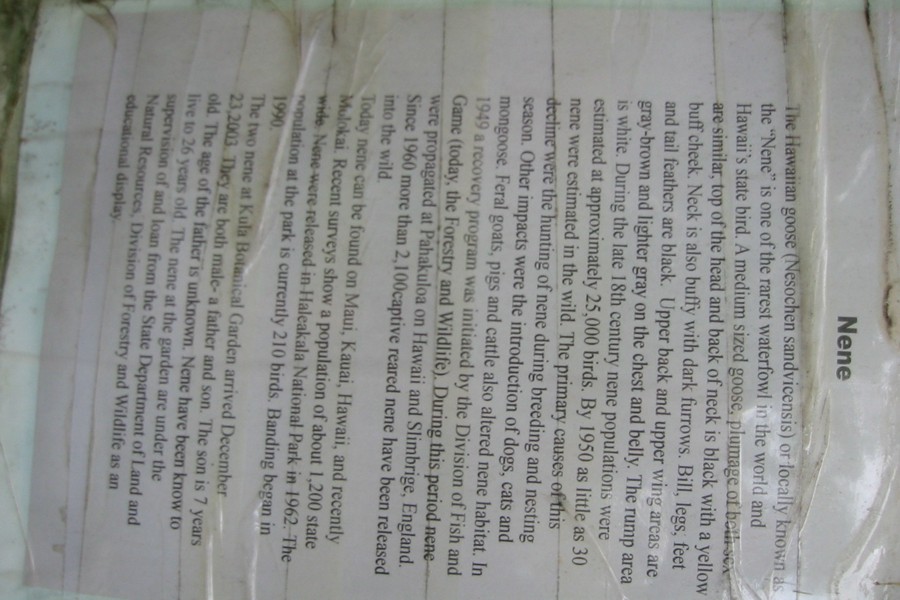 Nene
The Hawaiian goose (Nesochen sandvicensis) or locally known as
the "Nene" is one of the rarest waterfowl in the world and
Hawaii's state bird. A medium sized goose, plumage of both sex
are similar, top of the head and back of neck is black with a yellow
buff cheek. Neck is also buffy with dark furrows. Bill, legs, feet
and tail feathers are black. Upper back and upper wing areas are
gray-brown and lighter gray on the chest and belly. The rump area
is white. During the late 18th century nene populations were
estimated at approximately 25,000 birds. By 1950 as little as 30
nene were estimated in the wild. The primary causes of this
decline were the hunting of nene during breeding and nesting
season. Other impacts were the introduction of dogs, cats and
mongoose. Feral goats, pigs and cattle also altered nene habitat. In
1949 a recovery program was initiated by the Division of Fish and
Game (today, the Forestry and Wildlife). During this period nene
were propagated at Pahakuloa on Hawaii and Slimbrige, England.
Since 1960 more than 2,100captive reared nene have been released
into the wild.
Today nene can be found on Maui, Kauai, Hawaii, and recently
Molokai. Recent surveys show a population of about 1,200 state
wide. Nene were released in Haleakala National Park in 1962. The
population at the park is currently 210 birds. Banding began in
1990.
The two nene at Kula Botanical Garden arrived December
23,2003. They are both male- a father and son. The son is 7 years
old. The age of the father is unknown. Nene have been know to
live to 26 years old. The nene at the garden are under the
supervision of and loan from the State Department of Land and
Natural Resources, Division of Forestry and Wildlife as an
educational display.